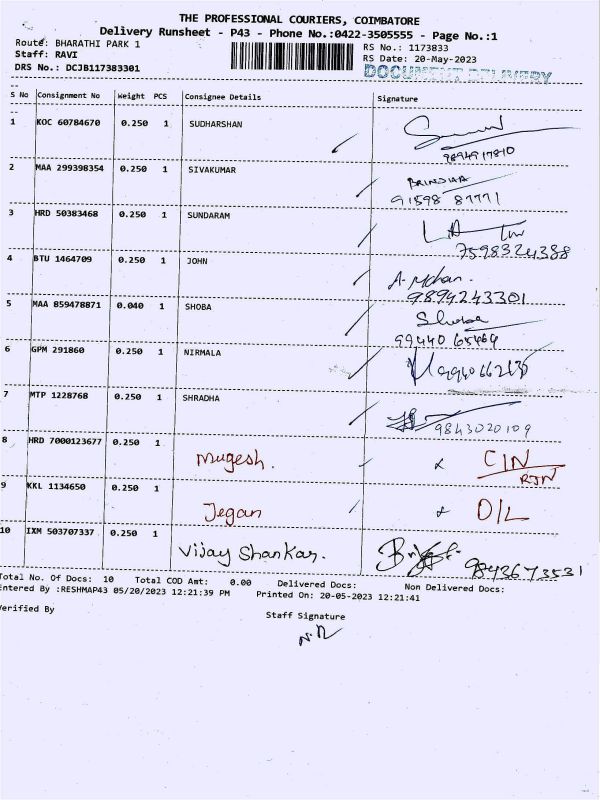 THE PROFESSIONAL COURIERS, COIMBATORE
Delivery Runsheet - P43 - Phone No.:0422-3505555 - Page No.:1
Route: BHARATHI PARK 1
RS No.: 1173833
Staff: RAVI
RS Date: 20-May-2023
DRS No.: DCJB117383301
DOCUMENT DELIVERY
S No Consignment No Weight PCS Consignee Details Signature
1 KOC 60784670 0.250 1 SUDHARSHAN
9894917810
2 MAA 299398354 0.250 1 SIVAKUMAR BRINDHA
91598 87771
3 HRD 50383468 0.250 1 SUNDARAM
7598324388
4 BTU 1464709 0.250 1 JOHN A. Mohan.
9894243301
5 MAA 859478871 0.040 1 SHOBA Shoba
99440 65464
6 GPM 291860 0.250 1 NIRMALA
7 MTP 1228768 0.250 1 SHRADHA
9843020109
8 HRD 7000123677 0.250 1 Mugesh. x C/N
RTN
9 KKL 1134650 0.250 1 Jegan x D/L
10 IXM 503707337 0.250 1 Vijay Shankar. 9843673531
Total No. Of Docs: 10 Total COD Amt: 0.00 Delivered Docs: Non Delivered Docs:
Entered By :RESHMAP43 05/20/2023 12:21:39 PM Printed On: 20-05-2023 12:21:41
Verified By Staff Signature